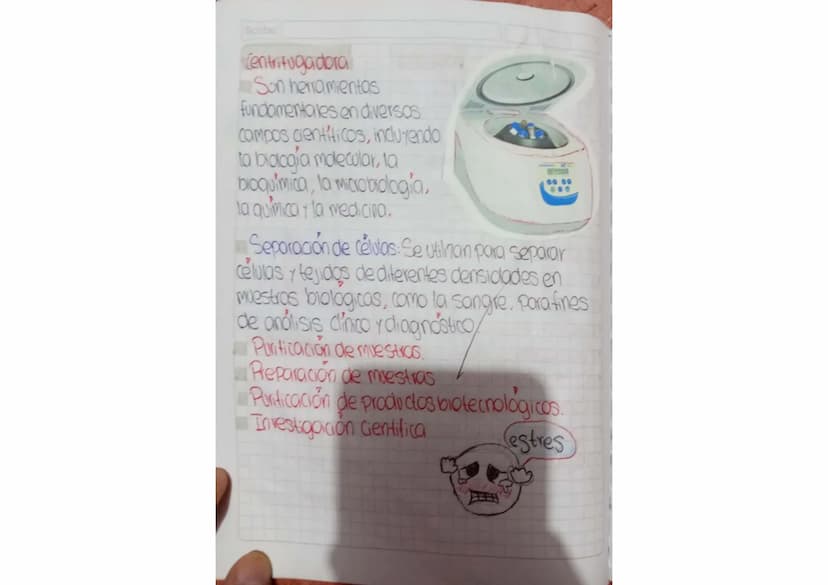 Centrifugadora
Son herramientas
fundamentales en diversos
campos científicos, incluyendo
la biología molecular, la
bioquímica, la microbiología,
la química y la medicina.
Separación de células: Se utilizan para separar
células y tejidos de diferentes densidades en
muestras biológicas, como la sangre, para fines
de análisis clínico y diagnóstico
Purificación de muestras.
Preparación de muestras
Purificación de productos biotecnológicos.
Investigación Científica
estres